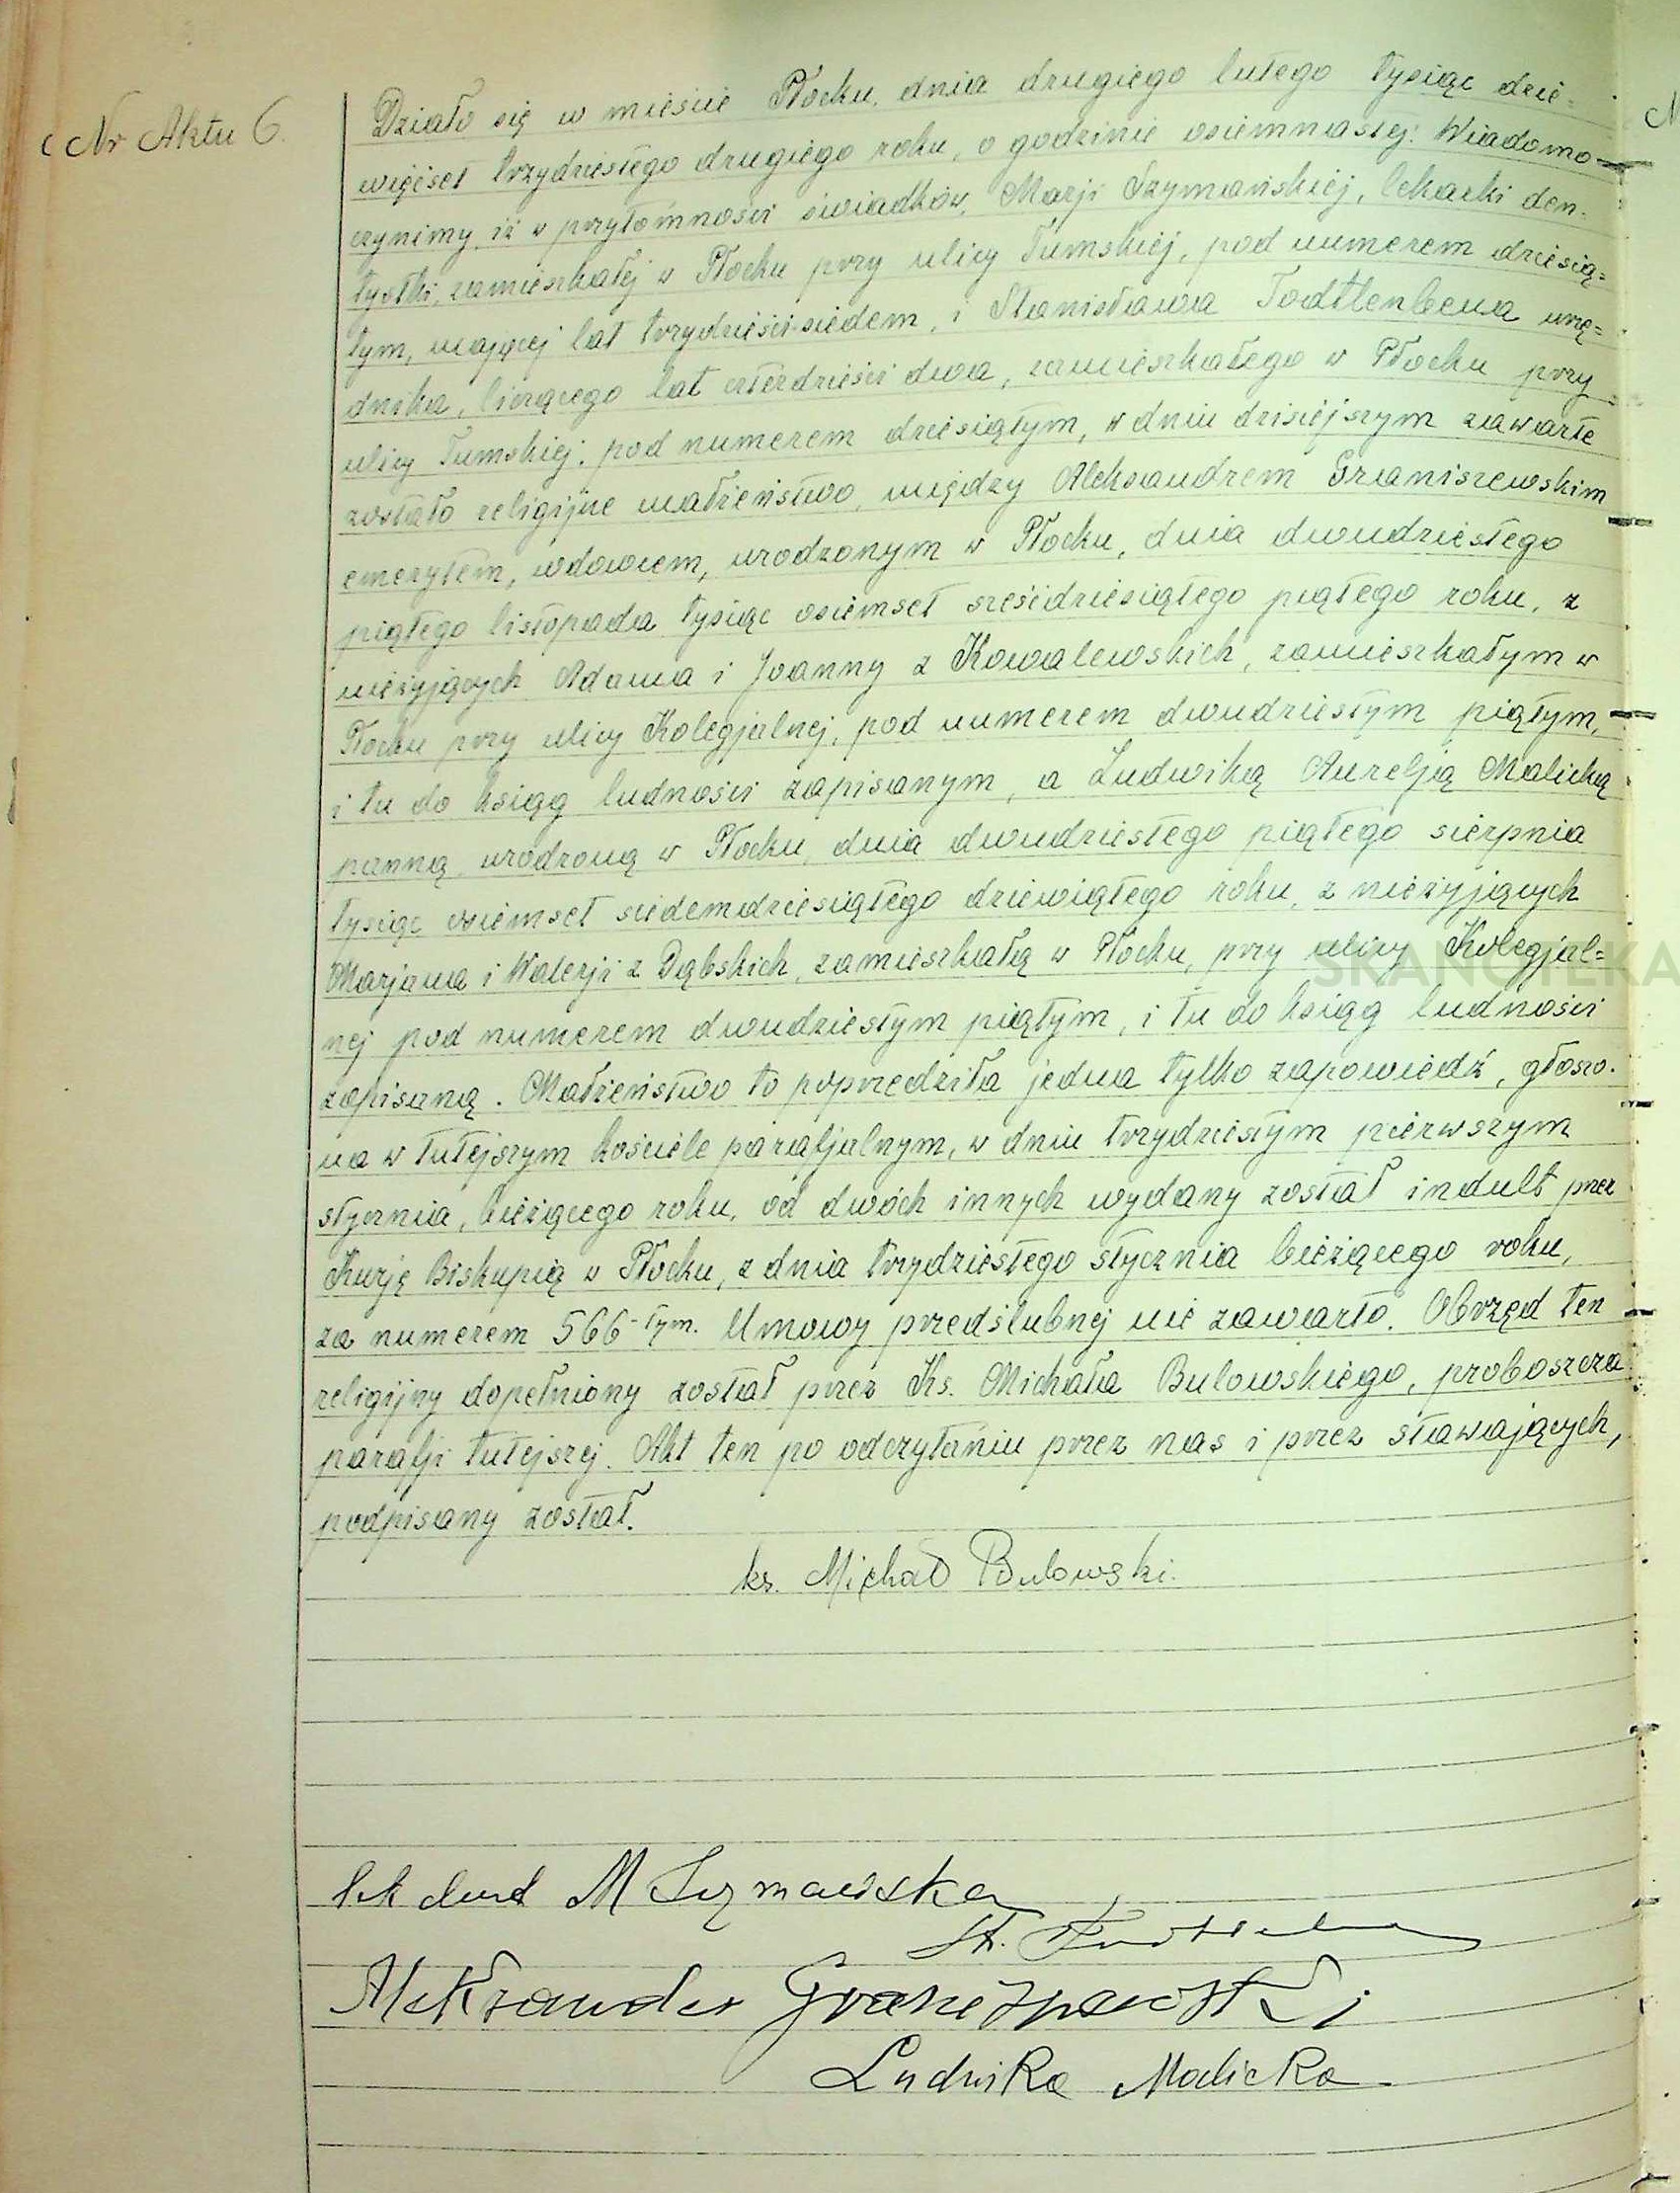 Nr Aktu 6.
Działo się w mieście Płocku, dnia drugiego lutego tysiąc dzie=
więćset trzydziestego drugiego roku, o godzinie osiemnastej. Wiadomo
czynimy, iż w przytomności świadków, Marji Szymańskiej, lekarki den-
tystki, zamieszkałej w Płocku przy ulicy Tumskiej, pod numerem dziesią=
tym, mającej lat trzydzieści siedem, i Stanisława Todtlenbena urzę=
dnika, liczącego lat czterdzieści dwa, zamieszkałego w Płocku przy
ulicy Tumskiej, pod numerem dziesiątym, w dniu dzisiejszym zawarte
zostało religijne małżeństwo, między Aleksandrem Graniszewskim
emerytem, wdowcem, urodzonym w Płocku, dnia dwudziestego
piątego listopada tysiąc osiemset sześćdziesiątego piątego roku, z
nieżyjących Adama i Joanny z Kowalewskich, zamieszkałym w
Płocku przy ulicy Kolegjalnej, pod numerem dwudziestym piątym,
i tu do ksiąg ludności zapisanym, a Ludwiką Aurelją Malicką
panną, urodzoną w Płocku, dnia dwudziestego piątego sierpnia
tysiąc osiemset siedemdziesiątego dziewiątego roku, z nieżyjących
Marjana i Walerji z Dąbskich, zamieszkałą w Płocku, przy ulicy Kolegjal=
nej pod numerem dwudziestym piątym, i tu do ksiąg ludności
zapisaną. Małżeństwo to poprzedziła jedna tylko zapowiedź, głoszo-
na w tutejszym kościele parafjalnym, w dniu trzydziestym pierwszym
stycznia, bieżącego roku, od dwóch innych wydany został indult przez
Kurję Biskupią w Płocku, z dnia trzydziestego stycznia bieżącego roku,
za numerem 566-tym. Umowy przedślubnej nie zawarto. Obrzęd ten
religijny dopełniony został przez Ks. Michała Bulowskiego, proboszcza
parafji tutejszej. Akt ten po odczytaniu przez nas i przez stawających,
podpisany został.
ks. Michał Bulowski.
lek dent M Szymańska
St.
Aleksander Graniszewski
Ludwika Malicka
SKANOTEKA